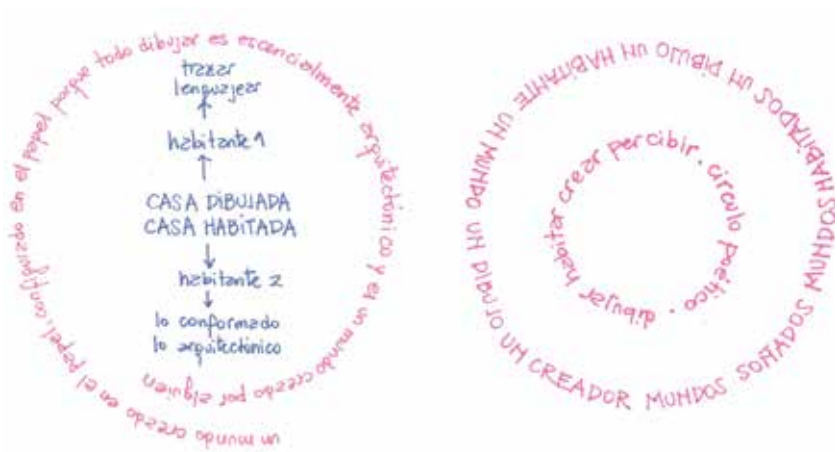 un mundo creado en el papel, configurado en el papel porque todo dibujar es escencialmente arquitectónico y es un mundo creado por alguien
trazar
lenguajear
habitante 1
CASA DIBUJADA
CASA HABITADA
habitante 2
lo conformado
lo arquitectónico
MUNDOS SOÑADOS MUNDOS HABITADOS UN DIBUJO UN HABITANTE UN MUNDO UN DIBUJO UN CREADOR
dibujar habitar crear percibir. círculo poético .